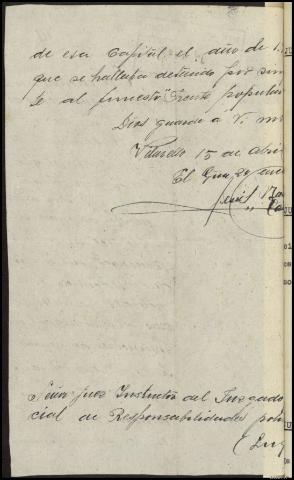 de esa Capital el año de 1
que se hallaba detenido por sim
te al funesto "Frente popular
Dios guarde a V. m
15 de Abri
El
Luis
Señor Juez Instructor del Juzgado
cial de Responsabilidades poli
(Lug